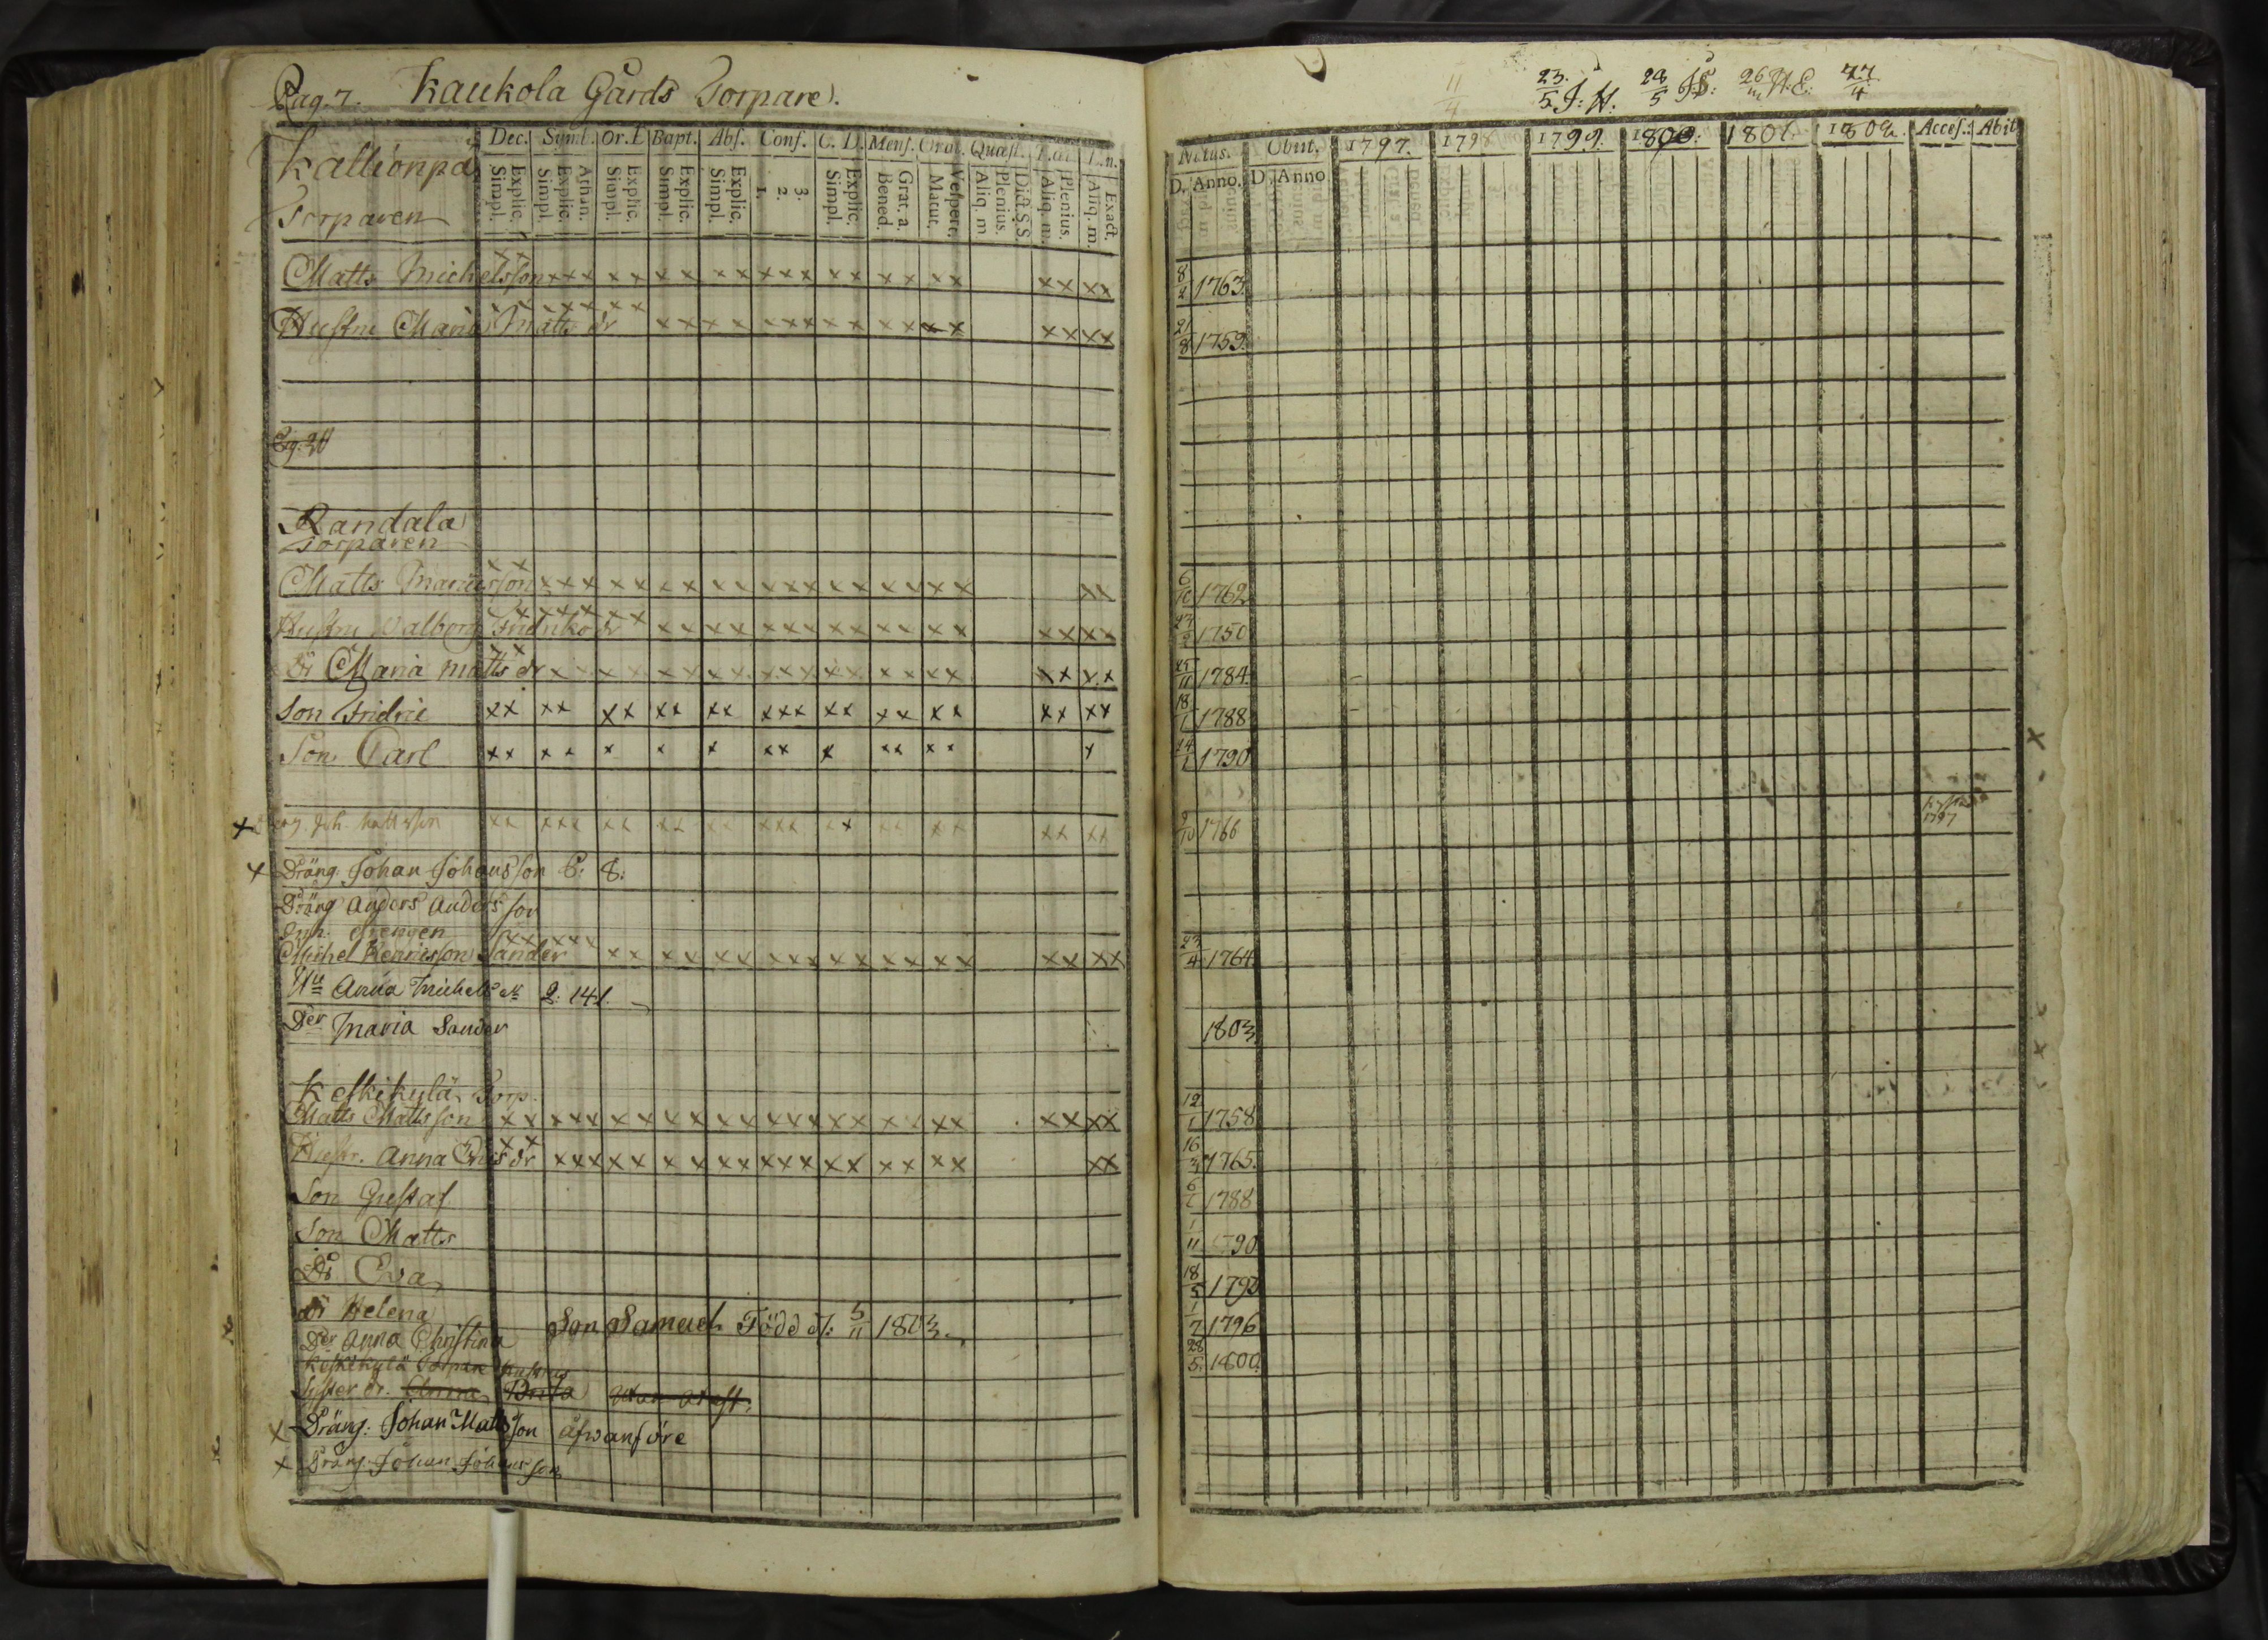 Pag. 7. Kaukola Gårds Torpare.
Kallionpä
Torparen
Dec. Symb. Or. D Bapt. Abs. Conf. C. D. Mens. Orat. Quæst.
Explic. Simpl. Athan. Explic. Simpl. Explic. Simpl. Explic. Simpl. Explic. Simpl. 3. 2. 1. Explic. Simpl. Grat. a. Bened. Vespert. Matut. Dict. S.S. Plenius. Aliq. m. Plenius. Aliq. m. Exact. Aliq. m.
Matts Michelsson
Hustru Maria Matts dr
Randala
Torparen
Matts
Hustru Valborg Fridriks dr
Dr Maria Matts dr
Son Fridric
Son Carl
Joh. Mattsson
Dräng. Johan Johansson 6: 8:
Dräng Anders Anders son
Michel Sander
Hu Anna Michels dr 2: 141.
Der Maria Sander
Keskikylä Torp.
Matts Mattsson
Hustr. Anna Erics dr
Son Gustaf
Son Matts
Dr Eva
Dr Helena
Son Samuel Född d: 5/11 1803
Der Anna Christina
Keskikylä Torpare hustrus
Syster dr. Anna Brita
Dräng: Johan Matts son äfvanföre
Dräng: Johan Johans son
11/4 23/5 J: H. 28/5 26/ 27/4
Natus. Obiit. 1797. 1798 1799. 1800. 1801. 1802. Access. Abit
D. Anno. D. Anno
8/2 1763.
21/8 1759.
6/10 1762
1750
25/11 1784.
18/1 1788
14/1 1790
9/10 1766
1797
23/4 1764
1803.
12/1 1758
16/3 1765.
6/ 1788
1/11 1790
18/5 1793
1/7 1796
28/5 1800.